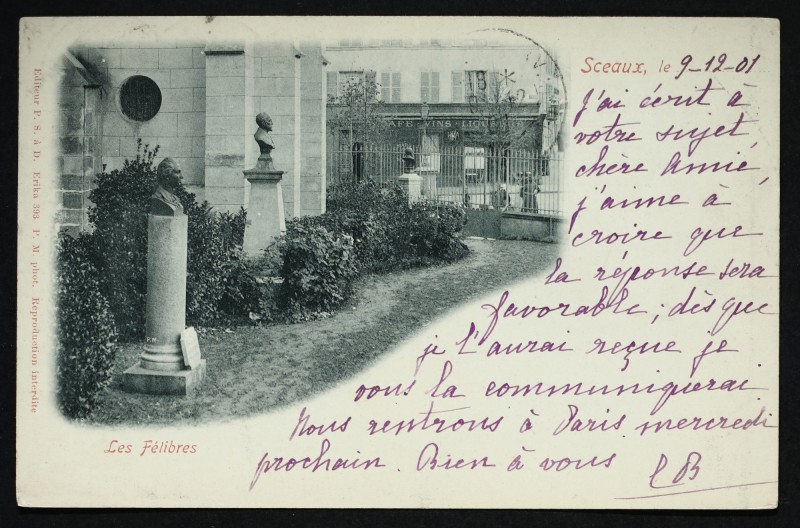 Sceaux, le 9-12-01
J'ai écrit à
votre sujet,
chère Amie,
j'aime à
croire que
la réponse sera
favorable; dès que
je l'aurai reçue je
vous la communiquerai.
Nous rentrons à Paris mercredi
prochain. Bien à vous
Les Félibres
Editeur P. S. à D. Erika 393 P. M phot. Reproduction interdite
CAFE VINS LIQU